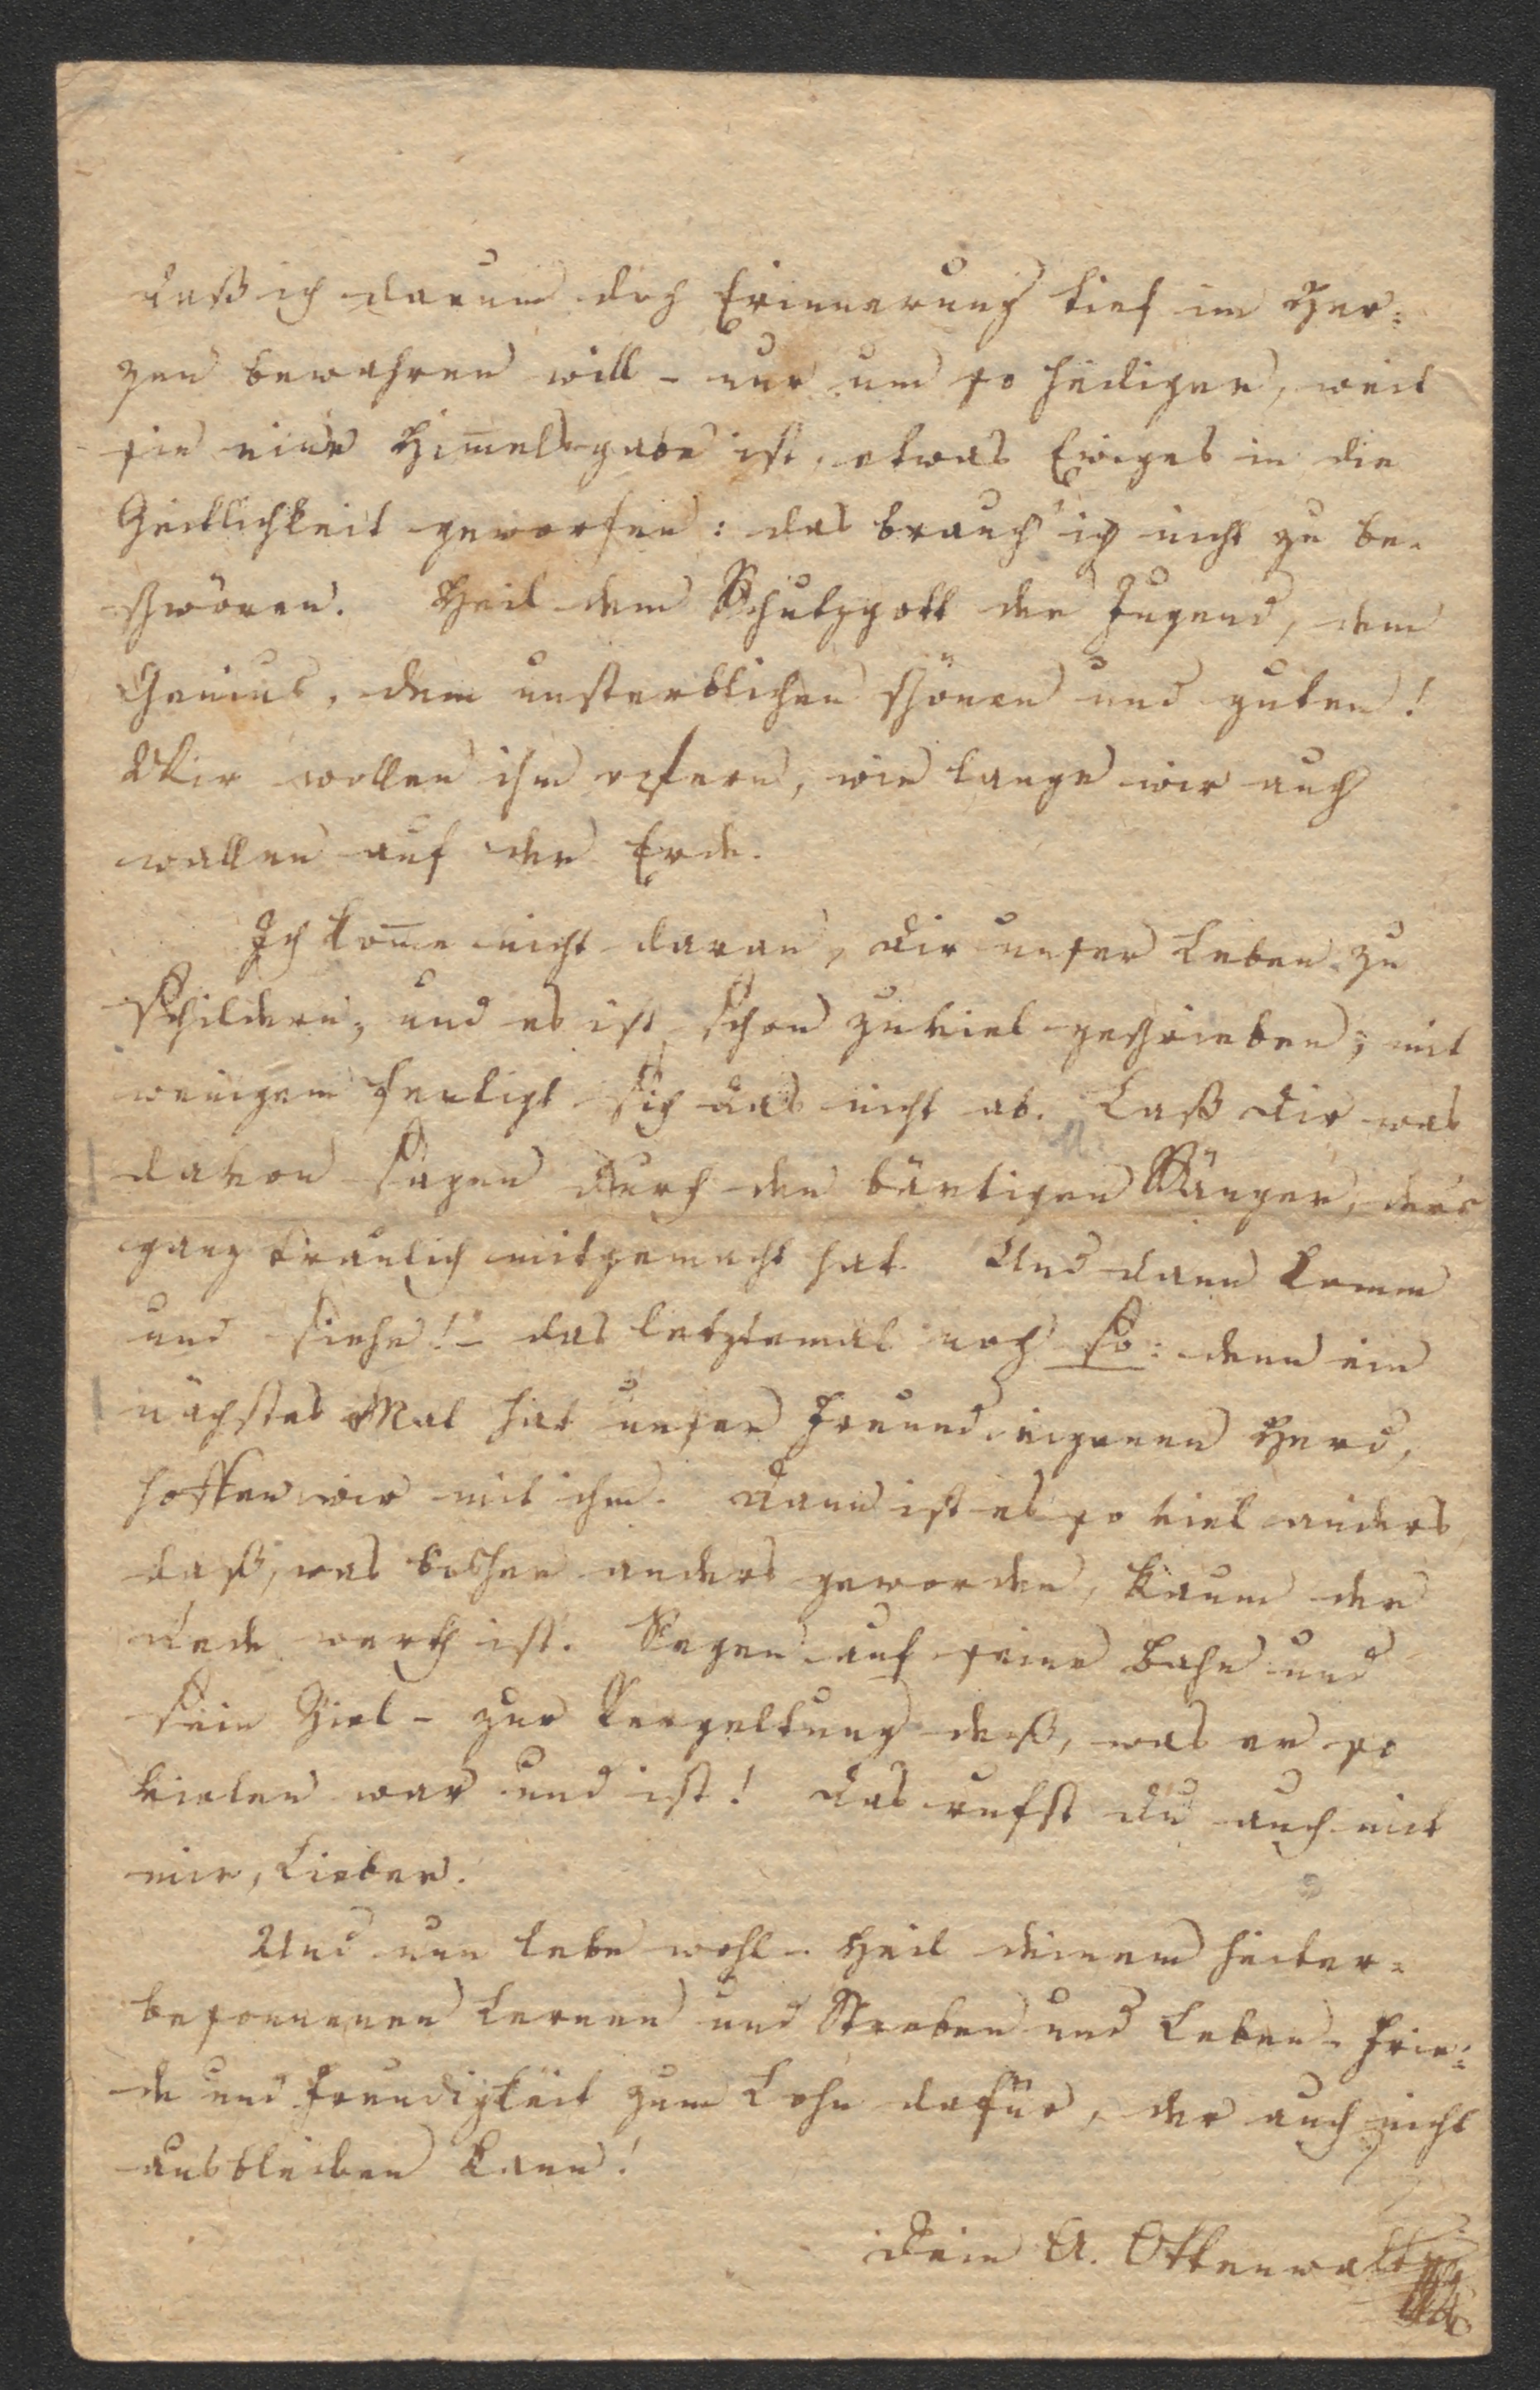 daß ich darum doch Erinnerung tief im Her=
zen bewahren will – nur um so heiliger, weil
sie eine Him̅elsgabe ist, etwas Ewiges in die
Zeitlichkeit geworfen: das brauch' ich nicht zu be-
schwören. Heil dem Schutzgott der Jugend, dem
Genius, dem unsterblichen schönen und guten!
Wir wollen ihm opfern, wie lange wir auch
wallen auf der Erde.
Ich kom̅e nicht daran, dir unser Leben zu
schildern, und es ist schon zuviel geschrieben; mit
wenigem fertigt sich das nicht ab. Laß dir was
davon sagen durch den bärtigen Sänger, der's
ganz traulich mitgemacht hat. Und dann komm
und siehe! – das letztemal noch so: denn ein
nächstes Mal hat unser Freund eigenen Herd,
hoffen wir mit ihm. Dann ist es so viel anders
daß, was bisher anders geworden, kaum der
Rede werth ist. Segen auf seine Bahn und
sein Ziel – zur Vergeltung deß, was er so
vielen war und ist! Das rufst du auch mit
mir, Lieber.
Und nun lebe wohl. Heil deinem heiter-
besonnenen Lernen und Streben und Leben – Frie=
de und Freudigkeit zum Lohn dafür, der auch nicht
ausbleiben kann!
Dein A. Ottenwalt